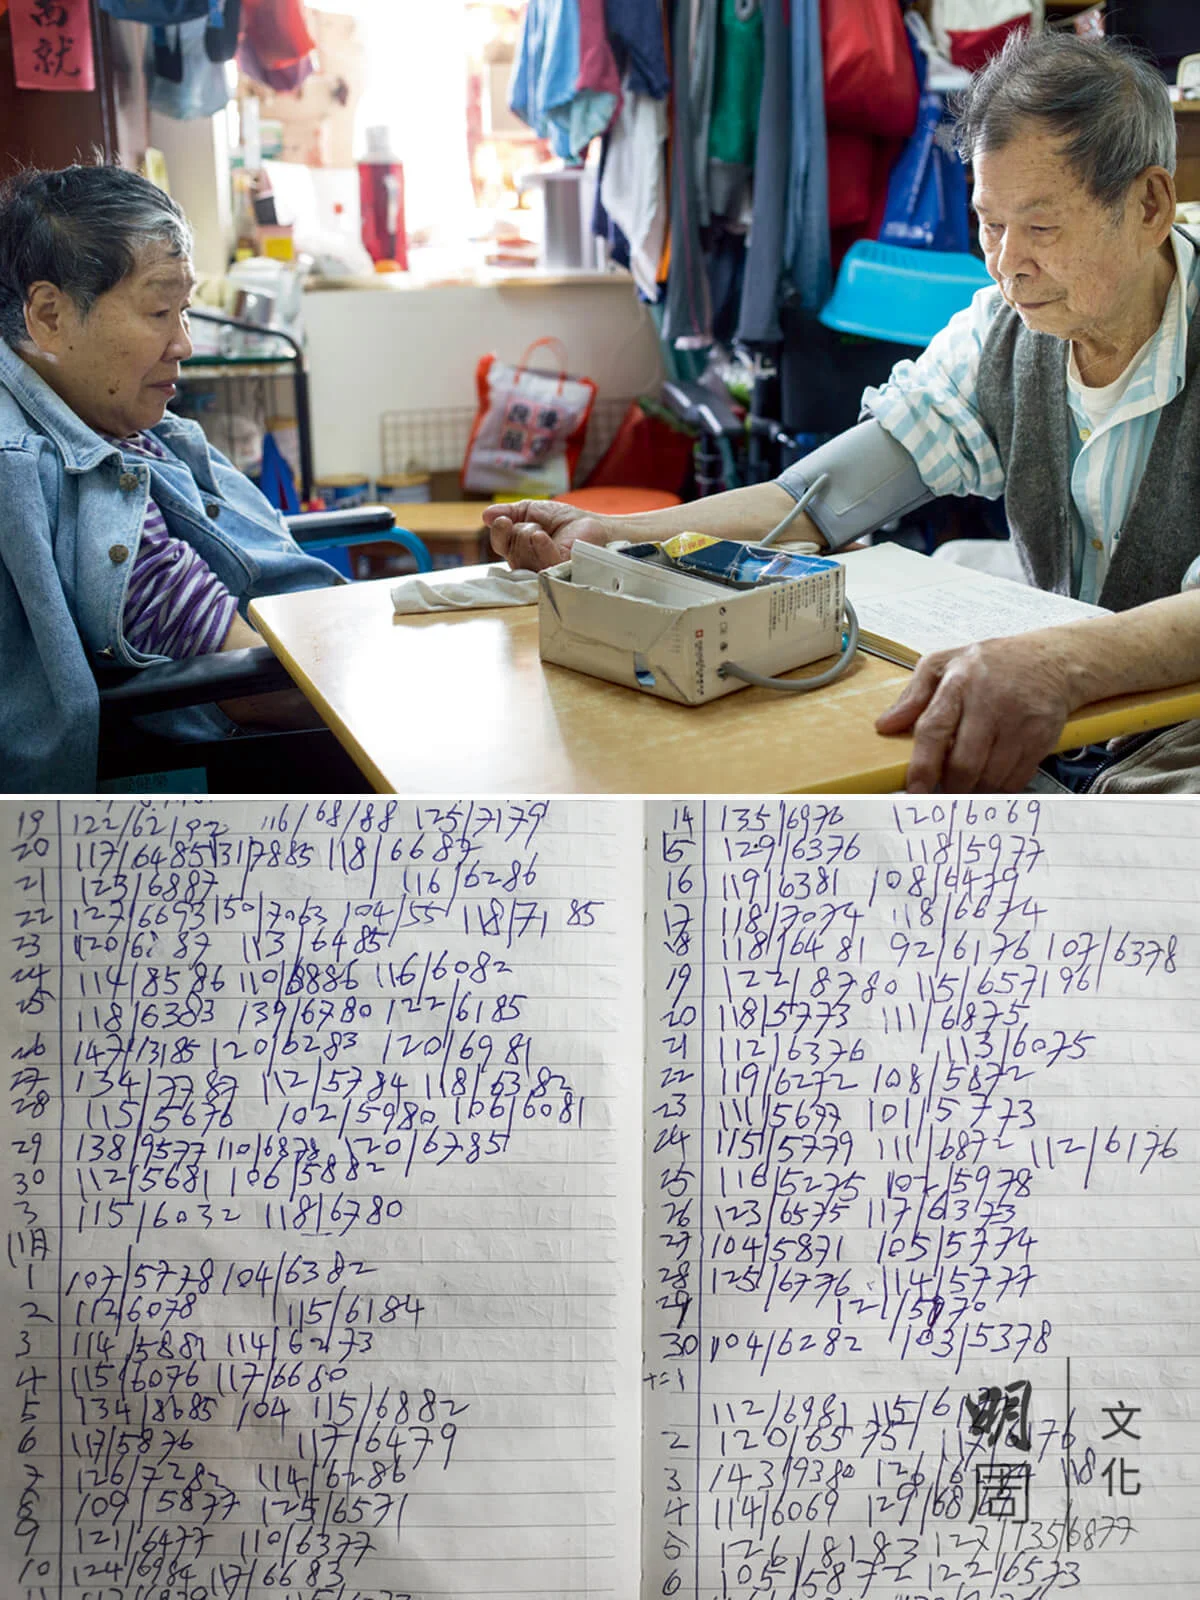 就
19 122/62/92 116/68/88 125/7179
20 117/6485 131/7885 118/6687
21 123/6887 116/6286
22 127/6693 150/7063 104/55 118/71 85
23 120/6 87 113/6485
24 114/8586 110/6886 116/6082
25 118/6383 139/6780 122/6185
26 147/73185 120/6283 120/6981
27 134/7787 112/5784 118/6382
28 115/5676 102/5980 106/6081
29 138/9577 110/6878 120/6785
30 112/5681 106/5882
3 115/6032 118/6780
11月
1 107/5778 104/6382
2 112/6078 115/6184
3 114/5887 114/6273
4 115/6076 117/6680
5 134/8685 104 115/6882
6 117/5876 117/6479
7 126/7282 114/6286
8 109/5877 125/6571
9 121/6477 110/6377
10 124/6984 117/6683
14 135/6976 120/6069
15 129/6376 118/5977
16 119/6381 108/6479
17 118/7074 118/6674
18 118/6481 92/6176 107/6378
19 122/8780 115/657196
20 118/5773 111/6875
21 112/6376 113/6075
22 119/6272 108/5872
23 111/5697 101/5773
24 115/5779 111/6872 112/6176
25 116/5275 102/5978
26 123/6575 117/6373
27 104/5871 105/5774
28 125/6776 114/5777
29 121/5970
30 104/6282 103/5378
十二1
112/6981 115/61
2 120/6575 117/ 76
3 143/9380 126/6 118
4 114/6069 129/686
5 126/8183 127/ 135/6877
6 105/5872 122/6573
明周
文化